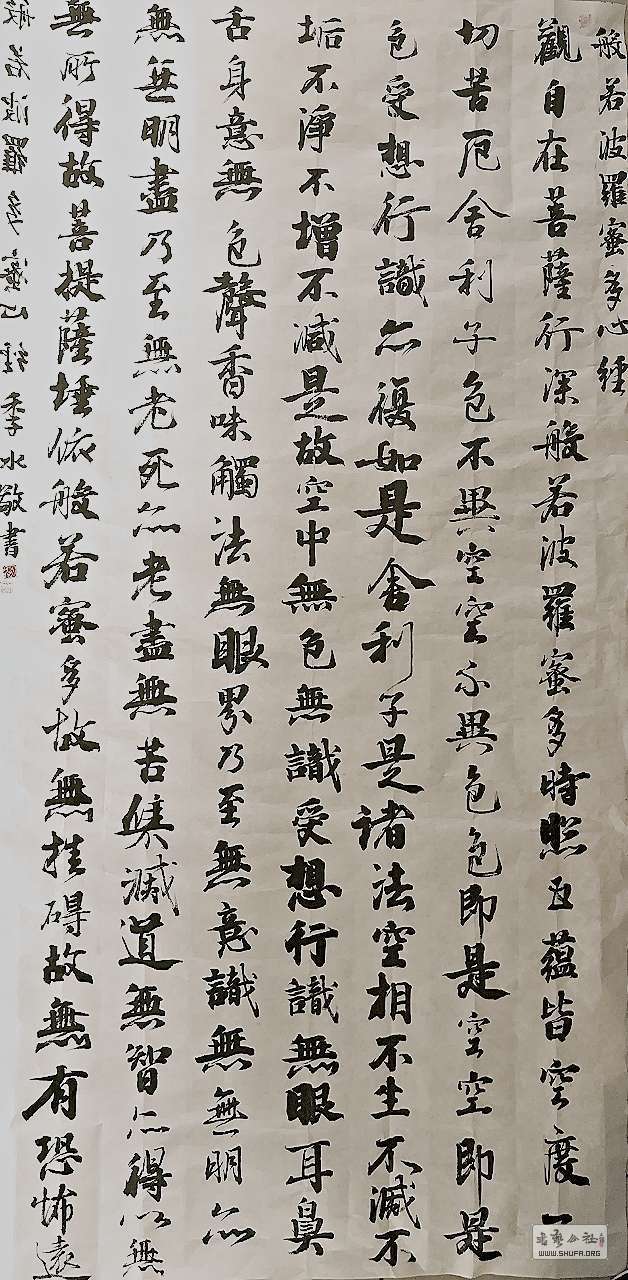 般若波羅蜜多心經
觀自在菩薩行深般若波羅蜜多時照五蘊皆空度一
切苦厄舍利子色不異空空不異色色即是空空即是
色受想行識亦復如是舍利子是諸法空相不生不滅不
垢不淨不增不減是故空中無色無識受想行識無眼耳鼻
舌身意無色聲香味觸法無眼界乃至無意識無無明亦
無無明盡乃至無老死亦老盡無苦集滅道無智亦得以無
無所得故菩提薩埵依般若蜜多故無挂碍故無有恐怖遠
般若波羅多蜜心經 水書
书艺公社
WWW.SHUFA.ORG